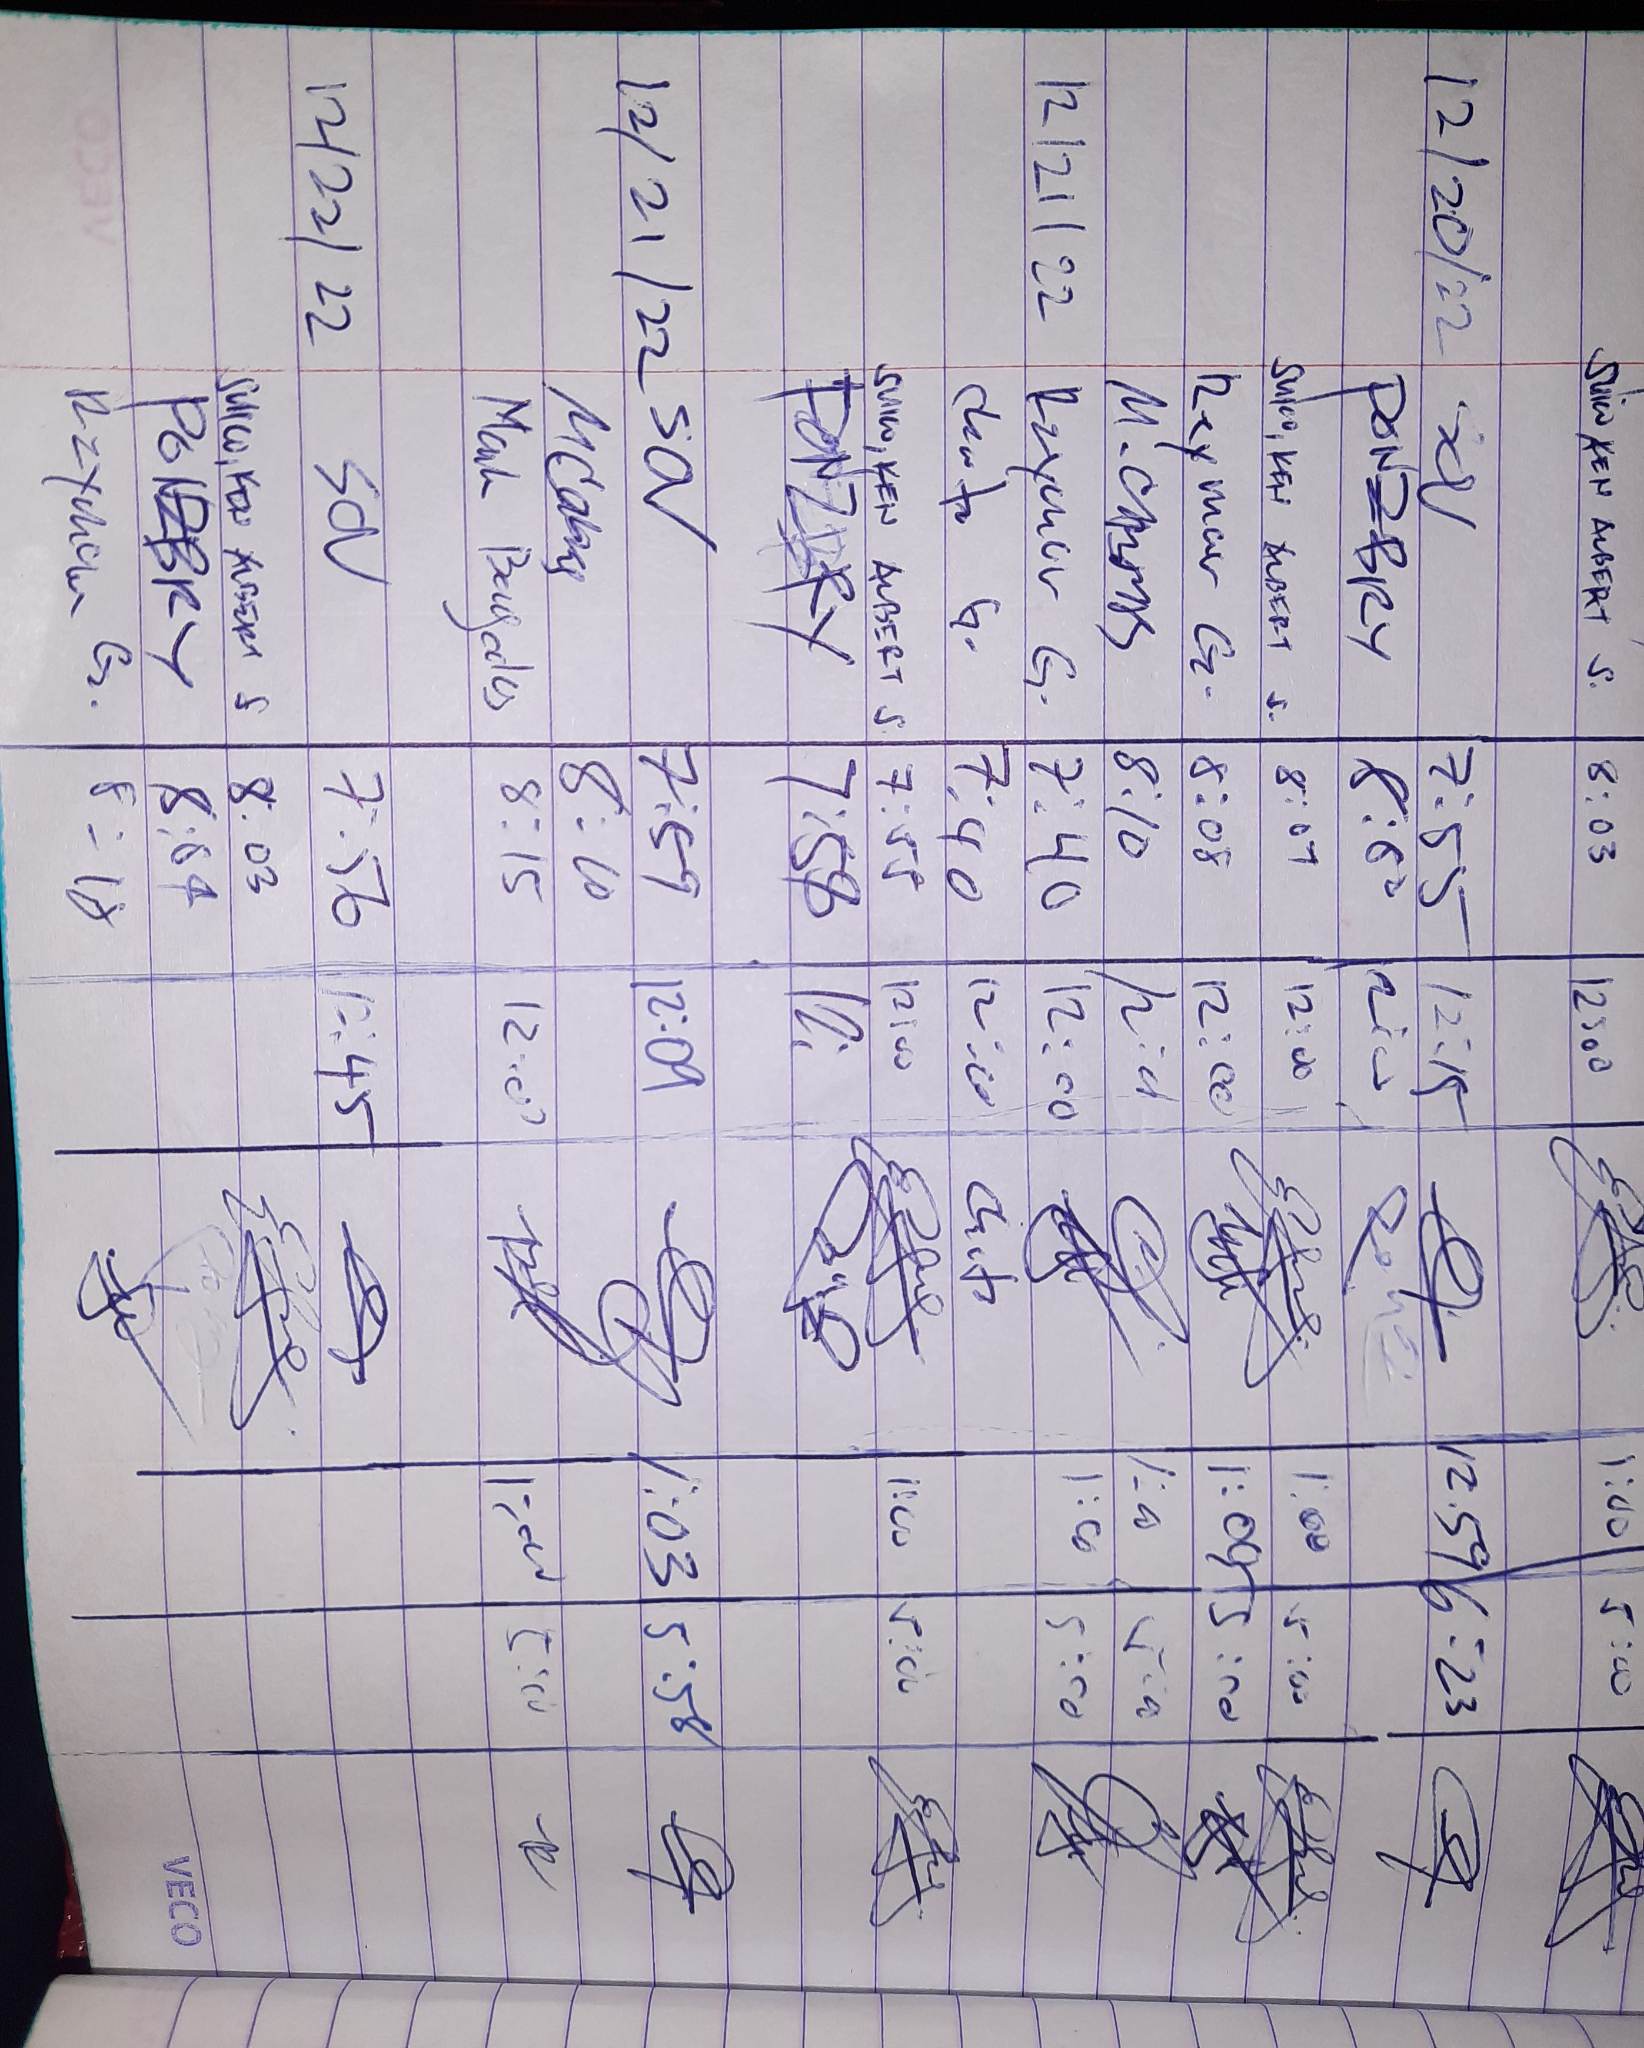 SUICO, KEN ALBERT S. 8:03 12:00 1:00 5:00
12/20/22 SON 7:55 12:15 12:59 6:23
PONZBRY 8:02
SUICO, KEN ALBERT S. 8:07 12:00 1:00 5:00
Reymar G. 8:08 12:00 1:00 5:00
8:10
12/21/22 Reymar G. 7:40 12:00 1:00 5:00
G. 7:40 12:00
SUICO, KEN ALBERT S. 7:55 12:00 1:00 5:00
PONZBRY 7:58 12:
12/21/22 SON 7:59 12:09 1:03 5:58
8:10
Mark 8:15 12:00 1:00 5:00
12/22/22 SON 7:56 1:45
SUICO, KEN ALBERT S 8:03
PONZBRY
Reymar G. 8:10
VECO